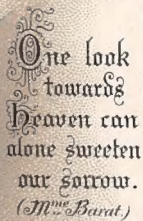 One look
towards
Heaven can
alone sweeten
our sorrow.
(Mme Barat.)